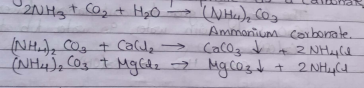 a carbonate
2NH3 + CO2 + H2O → (NH4)2 CO3
Ammonium Carbonate.
(NH4)2 CO3 + CaCl2 → CaCO3 ↓ + 2NH4Cl
(NH4)2 CO3 + MgCl2 → MgCO3 ↓ + 2NH4Cl